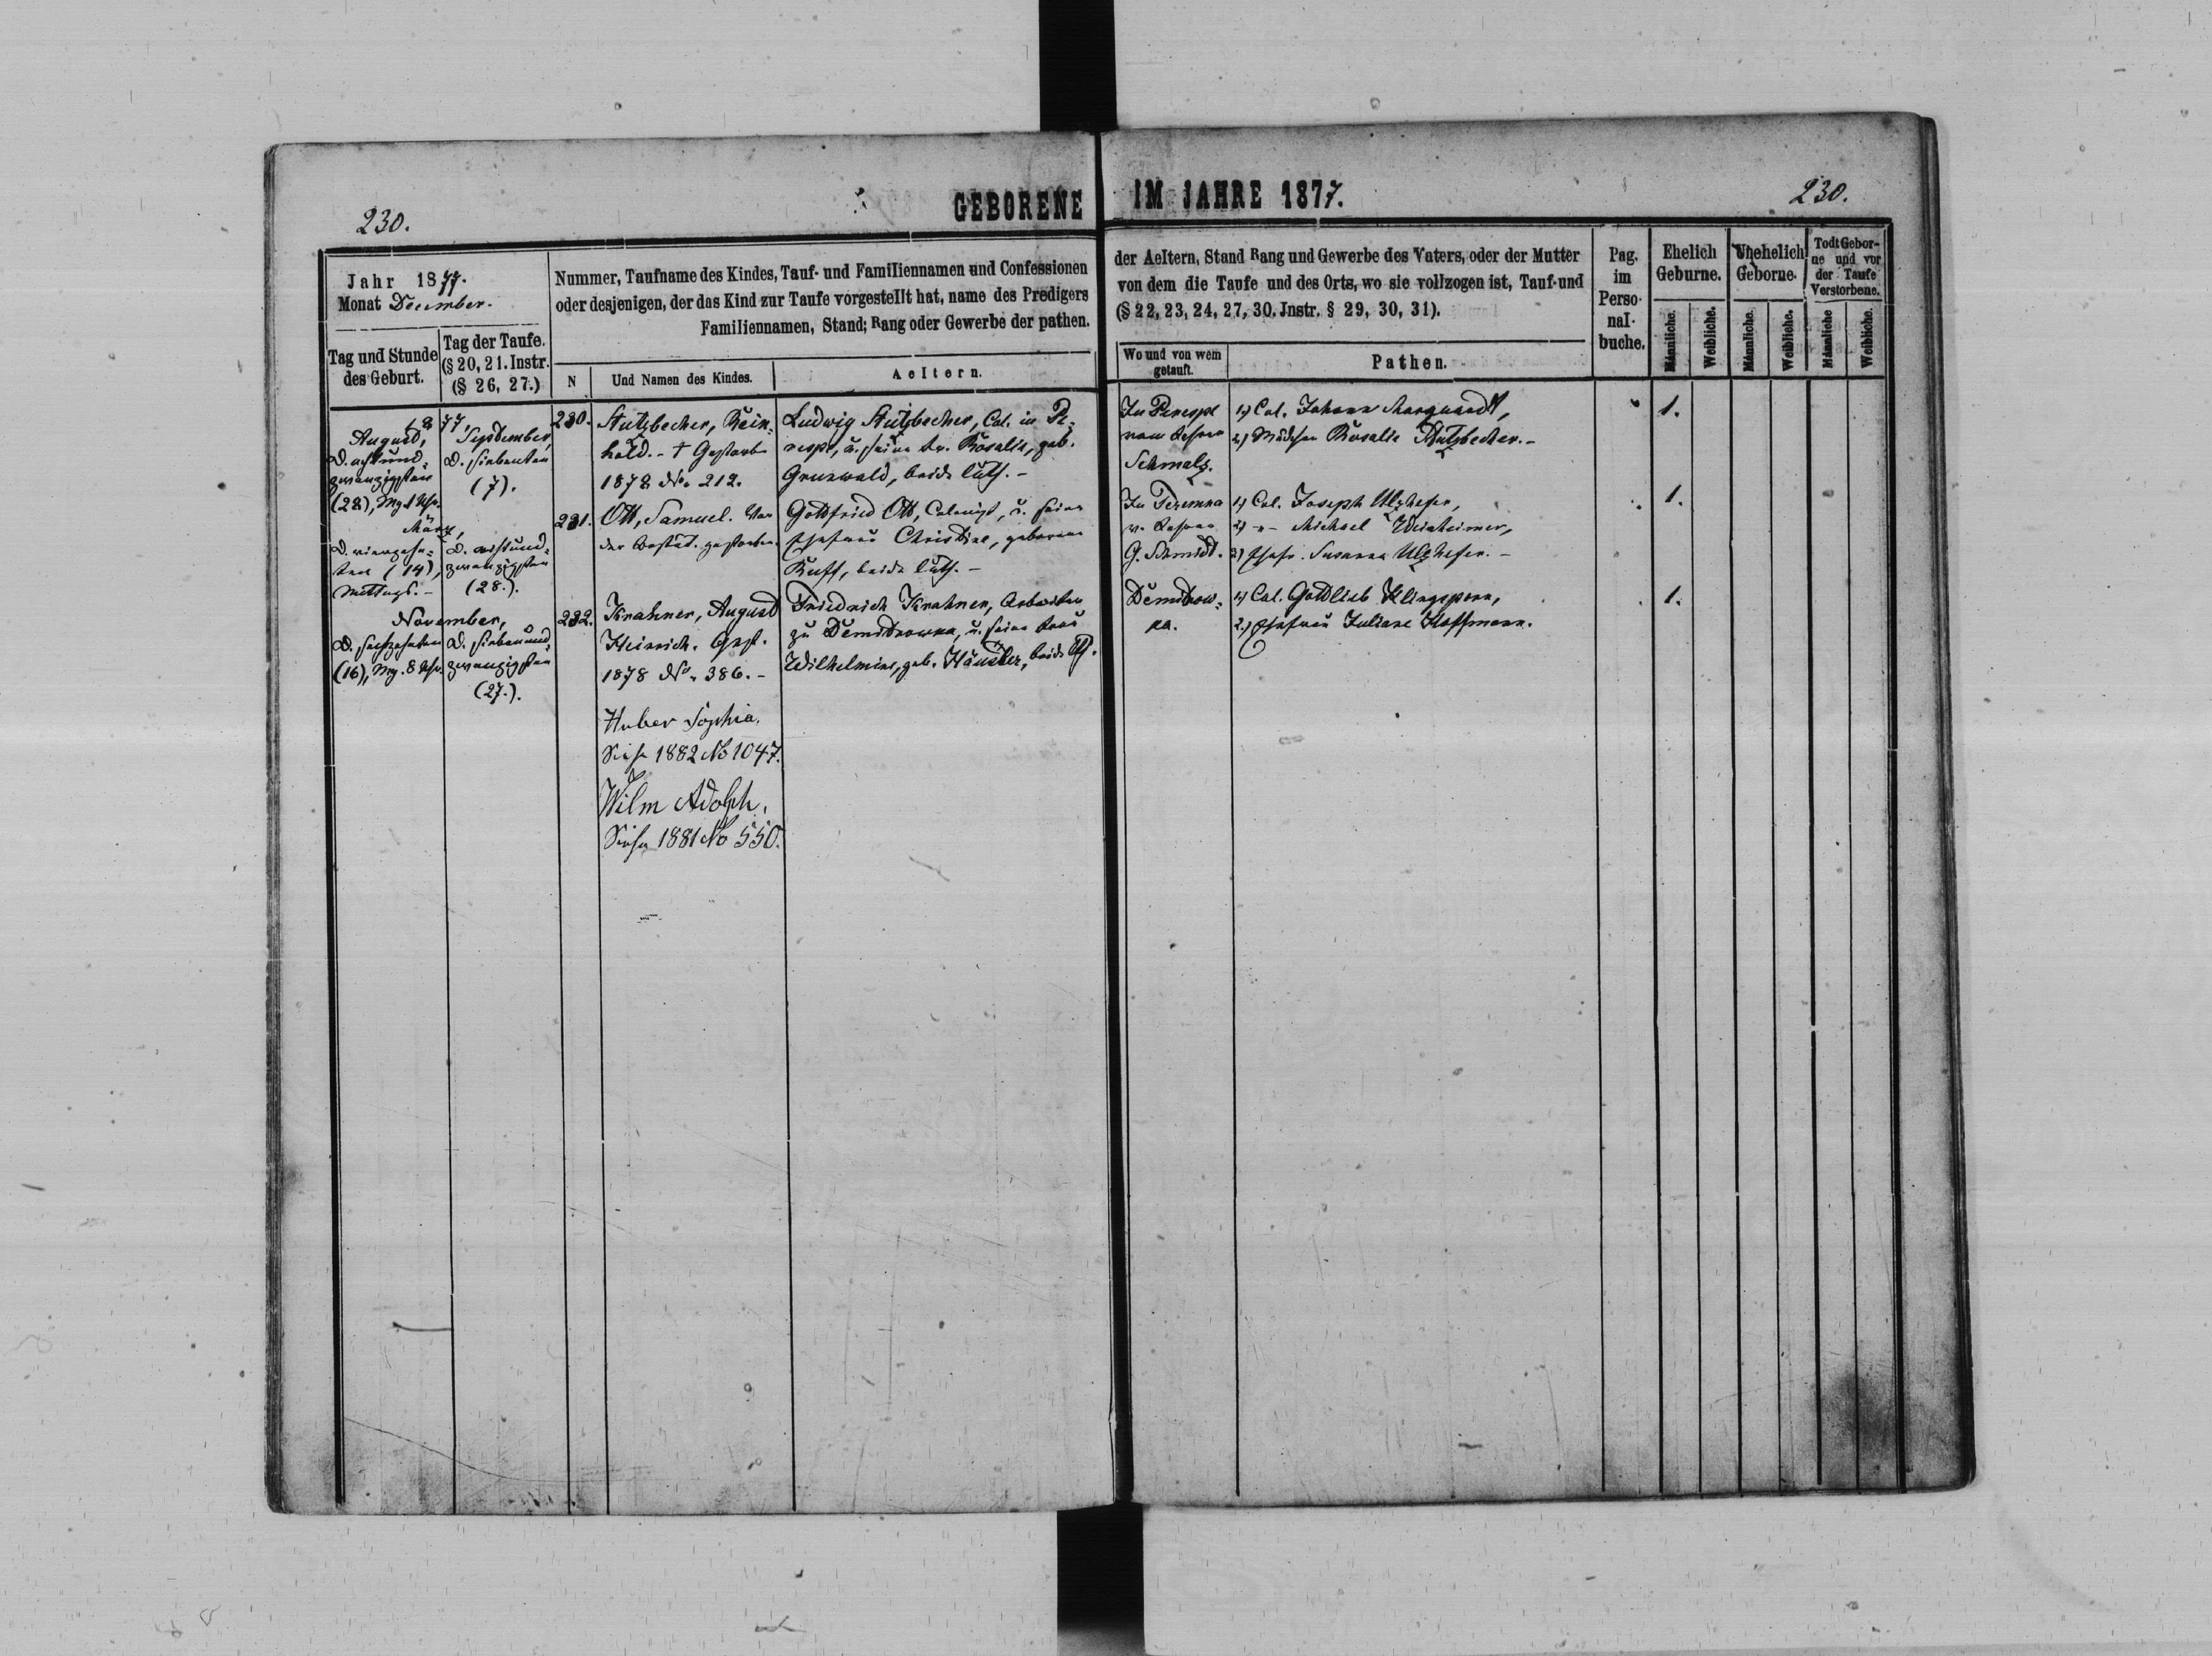 230.
GEBORENE IM JAHRE 1877.
230.
Jahr 1877.
Monat December.
Tag und Stunde
des Geburt.
Tag der Taufe.
(§ 20, 21. Instr.
(§ 26, 27.)
Nummer, Taufname des Kindes, Tauf- und Familiennamen und Confessionen
oder desjenigen, der das Kind zur Taufe vorgestellt hat, name des Predigers
Familiennamen, Stand; Rang oder Gewerbe der pathen.
N
Und Namen des Kindes.
Aeltern.
der Aeltern, Stand Rang und Gewerbe des Vaters, oder der Mutter
von dem die Taufe und des Orts, wo sie vollzogen ist, Tauf-und
(§ 22, 23, 24, 27, 30. Jnstr. § 29, 30, 31).
Wo und von wem
getauft.
Pathen.
Pag.
im
Perso-
nal-
buche.
Ehelich
Geburne.
Unehelich
Geborne.
Todt Gebor-
ne und vor
der Taufe
Verstorbene.
Männliche.
Weibliche.
Männliche.
Weibliche.
Männliche
Weibliche.
1877,
August,
D. achtund-
zwanzigsten
(28), Mg. 1 Uhr.
September,
D. siebenten
(7).
230.
Stutzbecher, Rein-
hold. - † Gestorben
1878 No. 212.
Ludwig Stutzbecher, Col. in Pe-
respe, u. seine Fr. Rosalie, geb.
Grunwald, beide luth. -
In Perespe
vom Lehrer
Schmalz.
1.) Col. Johann Marquardt,
2.) Mädchen Rosalie Stutzbecher. -
1.
März,
D. vierzehn-
ten (14),
Mittags. -
D. achtund-
zwanzigsten
(28.).
231.
Ott, Samuel. Vor
der Bestät. gestorben.
Gottfried Ott, Colonist, u. seine
Ehefrau Christine, geborene
Ruff, beide luth. -
v. Lehrer
G. Schmidt.
1.) Col. Joseph Ulzhefer,
2.) -"- Michael Weinheimer,
3.) Ehefr. Susanna Ulzhefer. -
1.
November,
D. sechzehnten
(16), Mg. 8 Uhr.
D. siebenund-
zwanzigsten
(27.).
232.
Krahner, August
Heinrich. Gest.
1878 No. 386. -
Friedrich Krahner, Arbeiter
zu Demidrowka, u. seine Frau
Wilhelmine, geb. Häusler, beide
Demidrow-
ka.
1.) Col. Gottlieb Klingsporn,
2.) Ehefrau Juliane Hoffmann.
1.
Huber Sophia.
Siehe 1882 No 1047.
Wilm Adolph.
Siehe 1881 No 550.